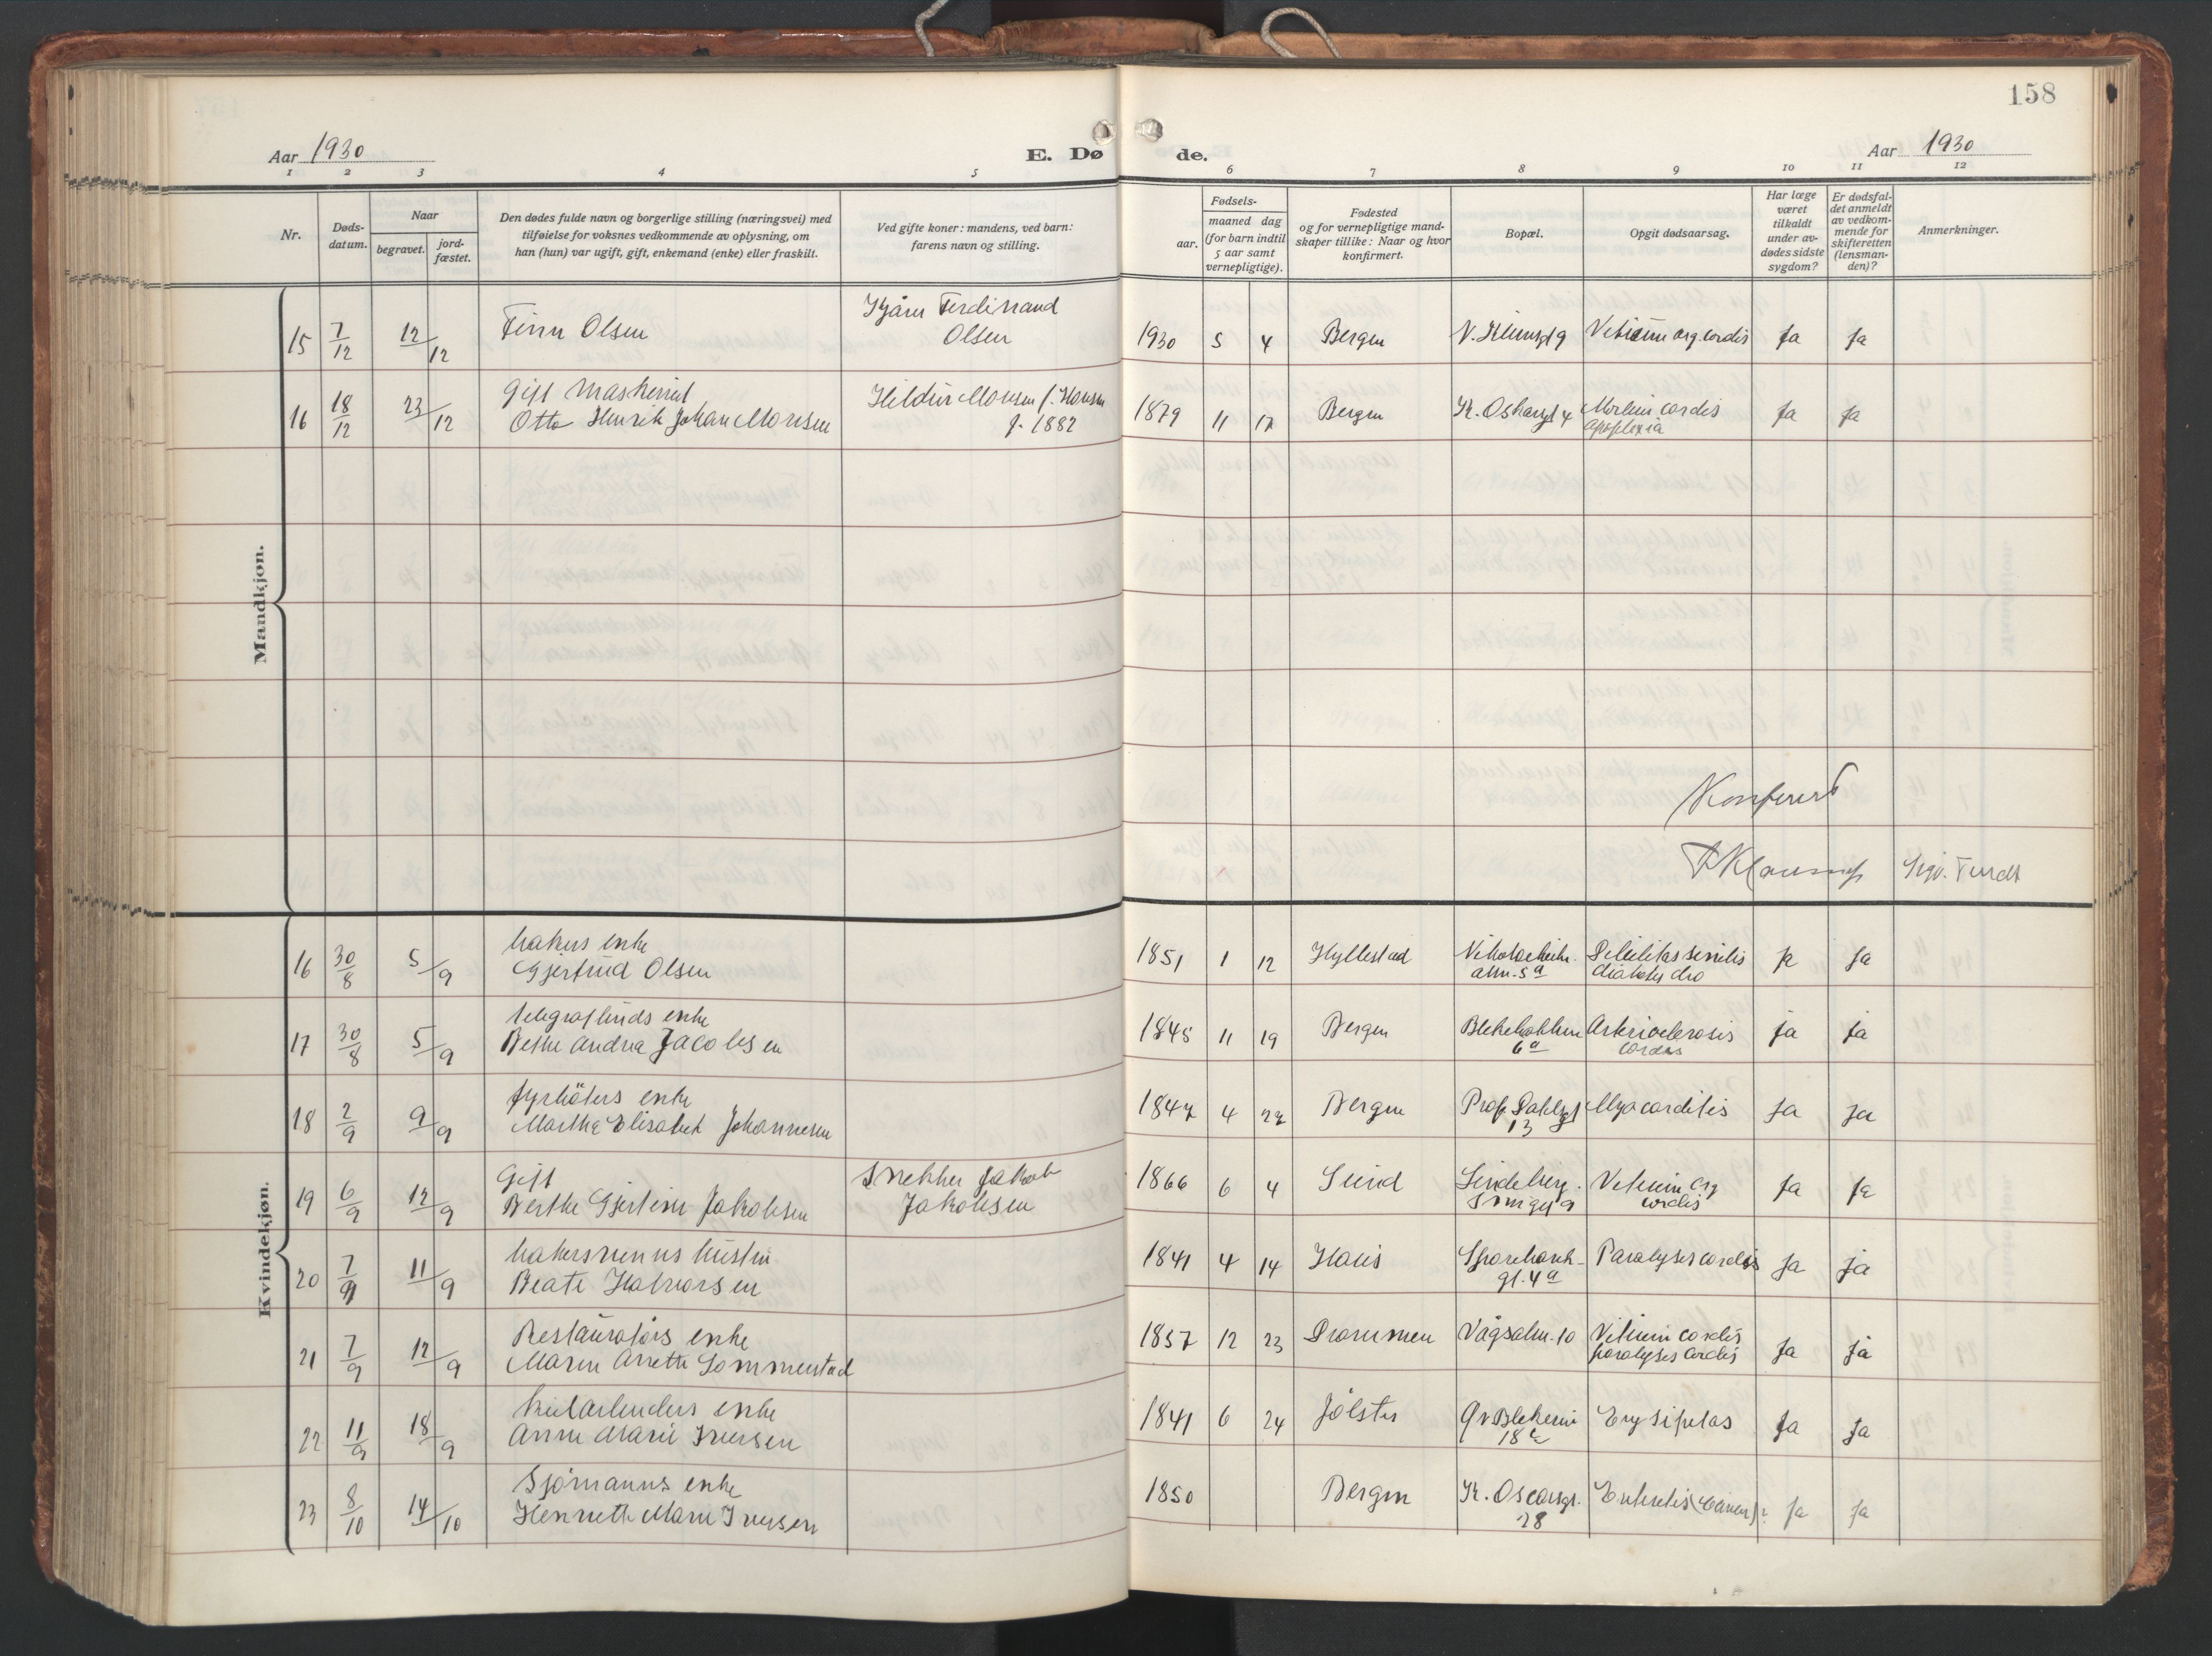 158
Aar 1930
E. Dø de.
Aar 1930
1 2 3 4 5 6 7 8 9 10 11 12
Nr.
Døds-
datum.
Naar
begravet.
jord-
fæstet.
Den dødes fulde navn og borgerlige stilling (næringsvei) med
tilføielse for voksnes vedkommende av oplysning, om
han (hun) var ugift, gift, enkemand (enke) eller fraskilt.
Ved gifte koner: mandens, ved barn:
farens navn og stilling.
Fødsels-
aar.
maaned dag
(for barn indtil
5 aar samt
vernepligtige).
Fødested
og for vernepligtige mand-
skaper tillike: Naar og hvor
konfirmert.
Bopæl.
Opgit dødsaarsag.
Har læge
været
tilkaldt
under av-
dødes sidste
sygdom?
Er dødsfal-
det anmeldt
av vedkom-
mende for
skifteretten
(lensman-
den)?
Anmerkninger.
Mandkjøn.
15 7/12 12/12 Finn Olsen Ferdinand
Olsen 1930 5 4 Bergen Ja Ja
16 18/12 23/12 Gift Maskinist
Otto Henrik Johan Monsen Hildur Monsen f. Hansen
f. 1882 1879 11 Bergen K. Oskarsgt 4 Morbus cordis
apoplexia Ja Ja
Konferert
Kvindekjøn.
16 30/8 5/9 bakers enke
Gjertrud Olsen 1851 1 12 Hyllestad Nikolaikirke-
alm. 5a Debilitas senilis
Ja Ja
17 30/8 5/9 enke
Berthe Andrea Jacobsen 1845 11 19 Bergen Blekebakken
6a Arteriosclerosis
cordis Ja Ja
18 2/9 9/9 fyrbøters enke
Martha Elisabeth Johannesen 1847 4 22 Bergen Prof. Dahlsgt
13 Myocarditis Ja Ja
19 6/9 12/9 Gift
Berthe Gjertine Jakobsen Snekker Jakob
Jakobsen 1866 6 4 Sund Vitium org
cordis Ja Ja
20 7/9 11/9 bakersvenns hustru
Beate Halvorsen 1841 4 14 Haus
gt. 4a Paralyses cordis Ja Ja
21 7/9 12/9 Restauratørs enke
Maren Anette Sommenstad 1857 12 23 Drammen Vågsalm. 10 Vitium cordis
paralyses cordis Ja Ja
22 11/9 18/9 enke
Anne Marie Iversen 1841 6 24 Jølster
Erysipelas Ja Ja
23 8/10 14/10 Sjømanns enke
Henrette Marie Iversen 1850 Bergen K. Oscarsgt.
28 Ja Ja